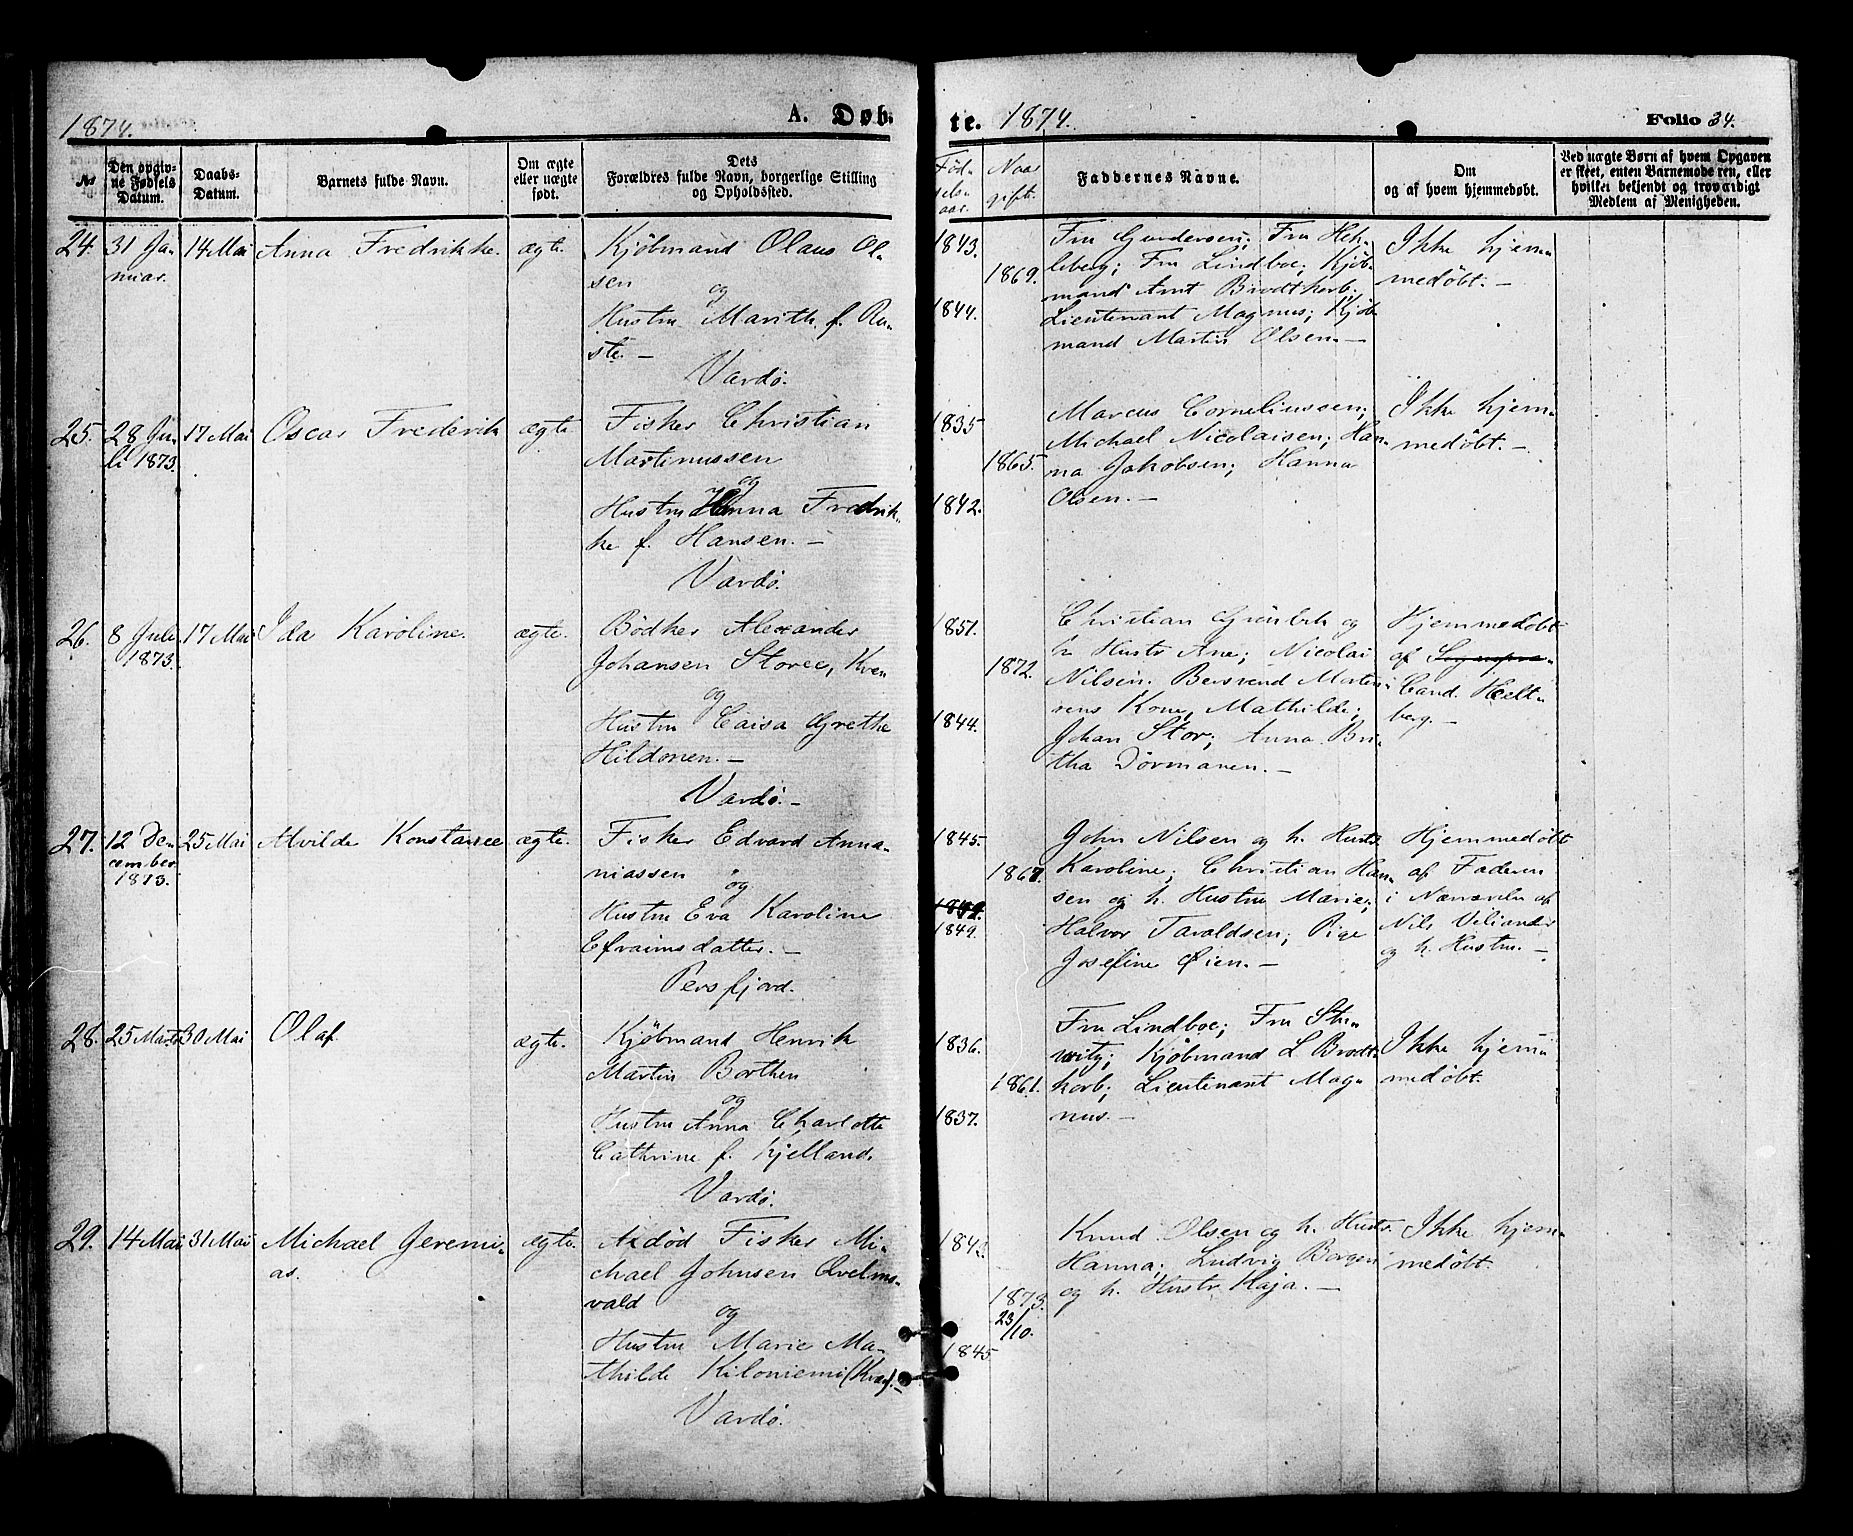 1874. A. Døb-
te. 1874. Folio 34.
No
Den opgiv-
ne Fødsels
Datum.
Daabs-
Datum.
Barnets fulde Navn.
Om ægte
eller uægte
født.
Dets
Forældres fulde Navn, borgerlige Stilling
og Opholdssted.
Fød-
sels-
aar.
Naar
gift.
Faddernes Navne.
Om
og af hvem hjemmedøbt.
Ved uægte Børn af hvem Opgaven
er skeet, enten Barnemoderen, eller
hvilket bekjendt og troværdigt
Medlem af Menigheden.
24. 31 Ja-
nuar.
14 Mai
Anna Fredrikke.
ægte.
Kjöbmand Olaus Ol-
sen
og
Hustru Marith f. Ru-
ste. —
Vardö.
1843.
1869.
1844.
Fru Gundersen; Fru Hek-
leberg; Fru Lindboe; Kjöb-
mand Arnt Brodtkorb,
Lieutenant Magnus; Kjöb-
mand Martin Olsen. —
Ikke hjem-
medöbt. —
25. 28 Ju-
li 1873.
17 Mai
Oscar Frederik
ægte.
Fisker Christian
Martinussen
og
Hustru Hanna Fredrik-
ke f. Hansen. —
Vardö.
1835
1865.
1842.
Marcus Corneliussen;
Michael Nicolaisen; Han-
na Jakobsen; Hanna
Olsen. —
Ikke hjem-
medöbt. —
26. 8 Juli
1873.
17 Mai
Ida Karoline.
ægte.
Bödker Alexander
Johansen Store, Kven
og
Hustru Caisa Grethe
Hildonen. —
Vardö. —
1851.
1872.
1844.
Christian Grünbek og
h. Hustr Ane; Nicolai
Nilsen. Bersvend Morten-
sens Kone, Mathilde;
Johan Stor; Anna Bri-
tha Dörmanen. —
Hjemmedöbt
af Sognepre-
Cand. Heelt-
berg. —
27. 12 De-
cember
1873.
25 Mai
Alvilde Konstance
ægte.
Fisker Edvard Anna-
niassen
og
Hustru Eva Karoline
Efraimsdatter. —
Persfjord.
1845.
1867.
1849.
John Nilsen og h. Hustr
Karoline; Christian Han-
sen og h. Hustru Marie;
Halvor Taraldsen; Pige
Josefine Øien. —
Hjemmedöbt
af Faderen
i Nærværelse af
Nils Veliander
og h. Hustru. —
28. 25 Marts
30 Mai
Olaf.
ægte.
Kjöbmand Henrik
Martin Borthen
og
Hustru Anna Charlotte
Cathrine f. Kjelland.
Vardö.
1836.
1861.
1837.
Fru Lindboe; Fru
Kjöbmand L Brodt-
korb; Lieutenant Mag-
nus. —
Ikke hjem-
medöbt.
29. 14 Mai
31 Mai
Michael Jeremi-
as.
ægte.
Afdöd Fisker Mi-
chael Johnsen Qvelms-
vald
og
Hustru Marie Ma-
thilde Kiloniemi (Kvæn). —
Vardö.
1843.
1873.
23/10.
1845
Knud Olsen og h. Hustr.
Hanna; Ludvig Borgen
og h. Hustr Kaja. —
Ikke hjem-
medöbt.